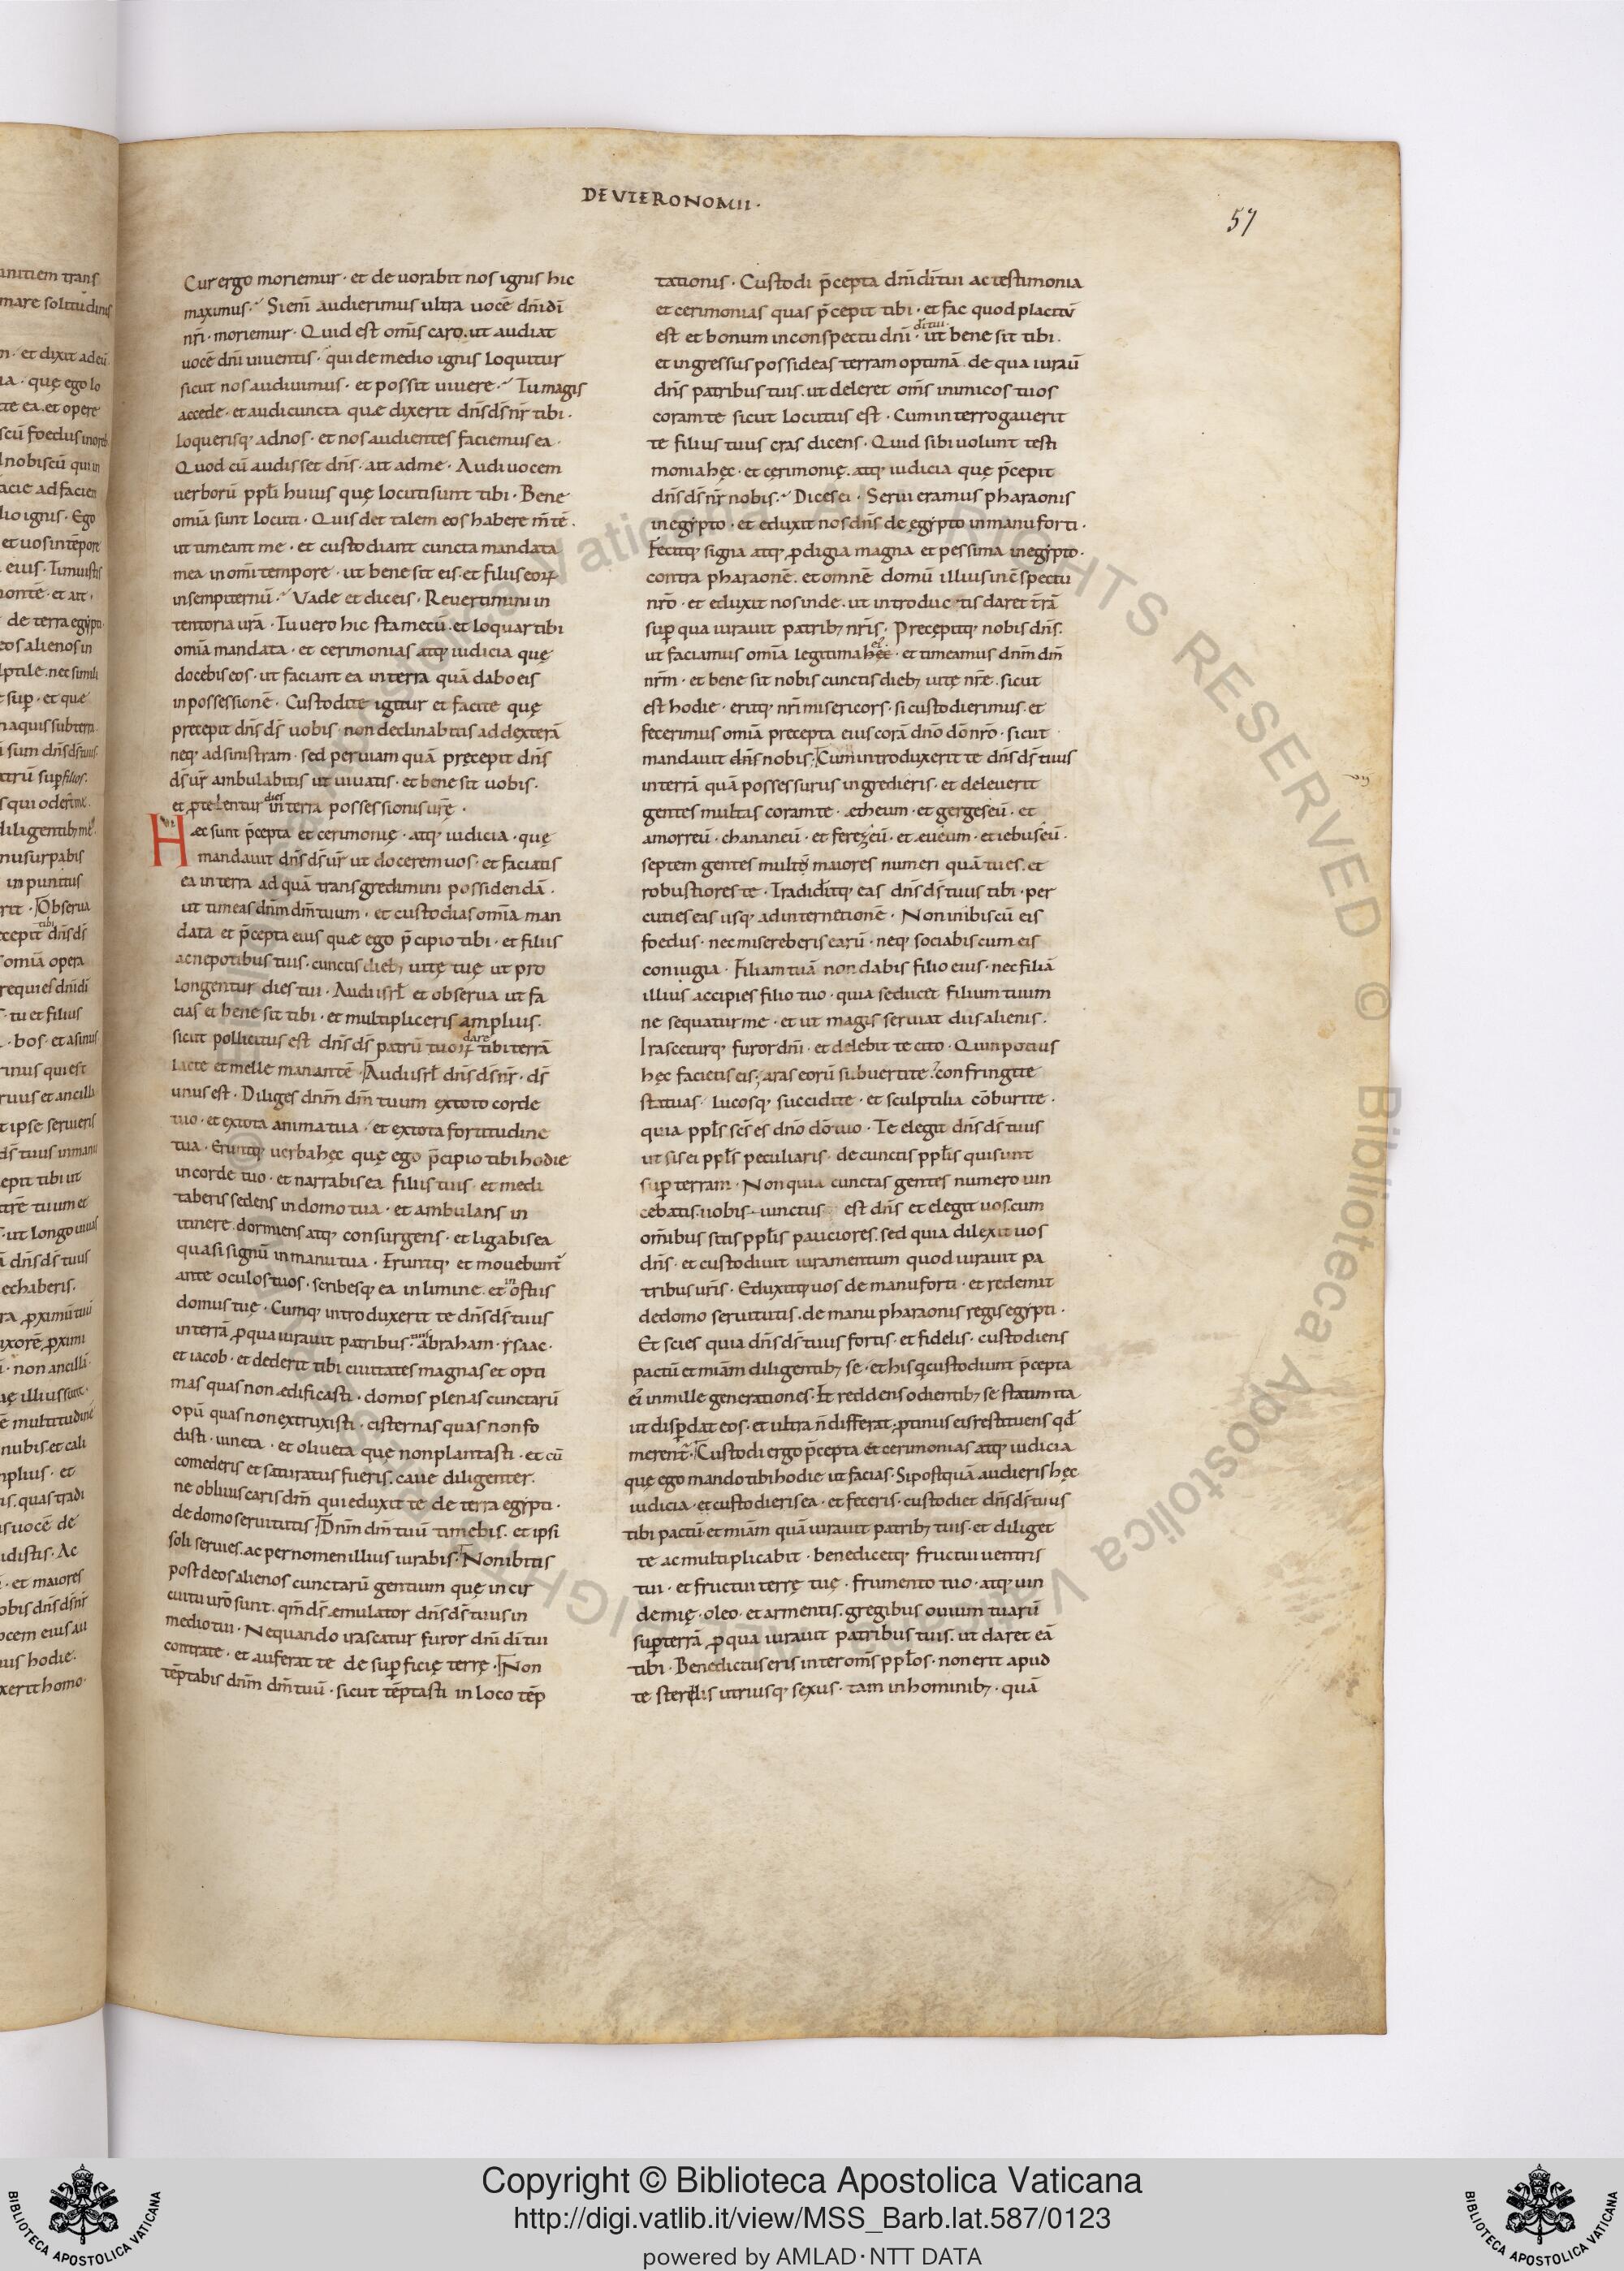 DEUTERONOMII·
57
Cur ergo moriemur· et deuorabit nos ignis hic
maximus· Si eni̅ audierimus ultra uoce̅ dn̅i di̅
nr̅i· moriemur· Quid est om̅is caro. ut audiat
uoce̅ dn̅i uiuentis· qui de medio ignis loquitur
sicut nos audiuimus· et possit uiuere· Tu magis
accede· et audi cuncta quæ dixerit dn̅s ds̅ nr̅ tibi·
loquerisq; ad nos· et nos audientes faciemus ea·
Quod cu̅ audisset dn̅s· ait ad me· Audi uocem
uerboru̅ ppl̅i huius quę locuti sunt tibi· Bene
omi̅a sunt locuti· Quis det talem eos habere m̅te̅·
ut timeant me· et custodiant cuncta mandata
mea in omi̅ tempore· ut bene sit eis· et filiis eoꝝ
in sempiternu̅· Vade et dic eis· Reuertimini in
tentoria ur̅a· Tu uero hic sta mecu̅· et loquar tibi
omi̅a mandata· et cerimonias atq; iudicia quę
docebis eos· ut faciant ea in terra qua̅ dabo eis
in possessione̅· Custodite igitur et facite quę
precepit dn̅s ds̅ uobis· non declinabitis ad dextera̅
neq; ad sinistram· sed per uiam qua̅ pręcepit dn̅s
ds̅ ur̅ ambulabitis ut uiuatis· et bene sit uobis·
et ꝓtelentur dies in terra possessionis ur̅ę·
Hæc sunt p̅cepta et cerimonię· atq; iudicia· quę
mandauit dn̅s ds̅ ur̅ ut docerem uos· et faciatis
ea in terra ad qua̅ transgredimini possidenda̅·
ut timeas dn̅m dm̅ tuum· et custodias omi̅a man
data et p̅cepta eius quæ ego p̅cipio tibi· et filiis
ac nepotibus tuis· cunctis dieb; uitę tuę ut pro
longentur dies tui· Audi isrl̅ et obserua ut fa
cias et bene sit tibi· et multipliceris amplius·
sicut pollicitus est dn̅s ds̅ patru̅ tuoꝝ dare tibi terra̅
lacte et melle manante̅· Audi isrl̅ dn̅s ds̅ nr̅· ds̅
unus est· Diliges dn̅m dm̅ tuum ex toto corde
tuo· et ex tota anima tua· et ex tota fortitudine
tua· Eruntq; uerba hęc quę ego p̅cipio tibi hodie
in corde tuo· et narrabis ea filiis tuis· et medi
taberis sedens in domo tua· et ambulans in
itinere· dormiens atq; consurgens· et ligabis ea
quasi signu̅ in manu tua· Eruntq; et mouebunt̅
ante oculos tuos· scribesq; ea in limine· et in ostiis
domus tuę· Cumq; introduxerit te dn̅s ds̅ tuus
in terra̅ ꝓ qua iurauit patribus tuis abraham· ysaac·
et iacob· et dederit tibi ciuitates magnas et opti
mas quas non ædificasti· domos plenas cunctaru̅
opu̅ quas non extruxisti· cisternas quas non fo
disti· uineta· et oliueta que non plantasti· et cu̅
comederis et saturatus fueris· caue diligenter·
ne obliuiscaris dm̅ qui eduxit te de terra egypti·
de domo seruitutis Dn̅m dm̅ tuu̅ timebis· et ipsi
soli seruies· ac per nomen illius iurabis· Non ibitis
post deos alienos cunctaru̅ gentium quę in cir
cuitu ur̅o sunt· qm̅ ds̅ æmulator dn̅s ds̅ tuus in
medio tui· Nequando irascatur furor dn̅i di̅ tui
contra te· et auferat te de sup̅ficię terrę· Non
te̅ptabis dn̅m dm̅ tuu̅· sicut te̅ptasti in loco te̅p
tationis· Custodi p̅cepta dn̅i di̅ tui ac testimonia
et cerimonias quas p̅cepit tibi· et fac quod placitu̅
est et bonum in conspectu dn̅i di̅ tui· ut bene sit tibi·
et ingressus possideas terram optima̅· de qua iurau̅
dn̅s patribus tuis· ut deleret om̅s inimicos tuos
coram te sicut locutus est· Cum interrogauerit
te filius tuus cras dicens· Quid sibi uolunt testi
monia hęc· et cęrimonię· atq; iudicia quę p̅cepit
dn̅s ds̅ nr̅ nobis· Dices ei· Serui eramus pharaonis
in egypto· et eduxit nos dn̅s de ęgypto in manu forti·
Fecitq; signa atq; ꝓdigia magna et pessima in egypto·
contra pharaone̅· et omne̅ domu̅ illius in c̅spectu
nr̅o· et eduxit nos inde· ut introductis daret tr̅a̅
sup̅ qua iurauit patrib; nr̅is· Precępitq; nobis dn̅s·
ut faciamus omi̅a legitima hęc· et timeamus dn̅m dm̅
nr̅m· et bene sit nobis cunctis dieb; uitę nr̅e· sicut
est hodie· eritq; nr̅i misericors· si custodierimus· et
fecerimus omi̅a precepta eius cora̅ dn̅o do̅ nr̅o· sicut
mandauit dn̅s nobis· Cum introduxerit te dn̅s ds̅ tuus
in terra̅ qua̅ possessurus ingredieris· et deleuerit
gentes multas coram te· ætheum· et gergeseu̅· et
amorreu̅· chananeu̅· et ferezeu̅· et æueum· et iebuseu̅·
septem gentes multo maiores numeri qua̅ tu es· et
robustiores te· Tradiditq; eas dn̅s ds̅ tuus tibi· per
cuties eas usq; ad internetione̅· Non inibis cu̅ eis
foedus· nec misereberis earu̅· neq; sociabis cum eis
coniugia· Filiam tua̅ non dabis filio eius· nec filia̅
illius accipies filio tuo· quia seducet filium tuum
ne sequatur me· et ut magis seruiat diis alienis·
Irasceturq; furor dn̅i· et delebit te cito· Quin potius
hęc facietis eis· aras eoru̅ subuertite· confringite
statuas· lucosq; succidite· et sculptilia co̅burite·
quia ppl̅s scs̅ es dn̅o do̅ tuo· Te elegit dn̅s ds̅ tuus
ut sis ei ppl̅s peculiaris· de cunctis ppl̅is qui sunt
sup̅ terram· Non quia cunctas gentes numero uin
cebatis· uobis iunctus est dn̅s et elegit uos· cum
om̅ibus sitis ppl̅is pauciores· sed quia dilexit uos
dn̅s· et custodiuit iuramentum quod iurauit pa
tribus ur̅is· Eduxitq; uos de manu forti· et redemit
de domo seruitutis· de manu pharaonis regis egypti·
Et scies quia dn̅s ds̅ tuus fortis· et fidelis· custodiens
pactu̅ et mi̅am diligentib; se· et his q̅ custodiunt p̅cepta
ei᾽ in mille generationes· Et reddens odientib; se statim ita
ut disp̅dat eos· et ultra n̅ differat· ꝓtinus eis restituens qd̅
merent̅· Custodi ergo p̅cepta et cerimonias atq; iudicia
quę ego mando tibi hodie ut facias· Si postqua̅ audieris hęc
iudicia· et custodieris ea· et feceris· custodiet dn̅s ds̅ tuus
tibi pactu̅ et mi̅am qua̅ iurauit patrib; tuis· et diliget
te ac multiplicabit· benedicetq; fructui uentris
tui· et fructui terrę tuę· frumento tuo· atq; uin
demię· oleo· et armentis· gregibus ouium tuaru̅
sup̅ terra̅ ꝓ qua iurauit patribus tuis· ut daret ea̅
tibi· Benedictus eris inter om̅s ppl̅os· non erit apud
te sterilis utriusq; sexus· tam in hominib;· qua̅
Copyright © Biblioteca Apostolica Vaticana
http://digi.vatlib.it/view/MSS_Barb.lat.587/0123
powered by AMLAD·NTT DATA
BIBLIOTECA APOSTOLICA VATICANA
BIBLIOTECA APOSTOLICA VATICANA